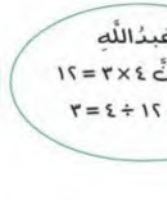 عَبدُاللَّهِ
١٢ = ٣ × ٤ نَّ
٣ = ٤ ÷ ١٢